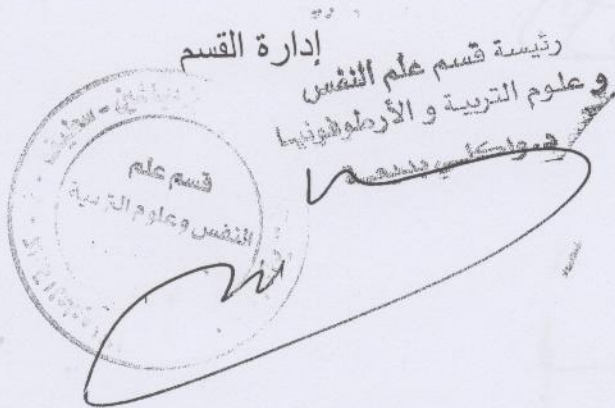 إدارة القسم
رئيسة قسم علم النفس
و علوم التربية و الأرطوفونيا
قسم علم
النفس وعلوم التربية
سطيف